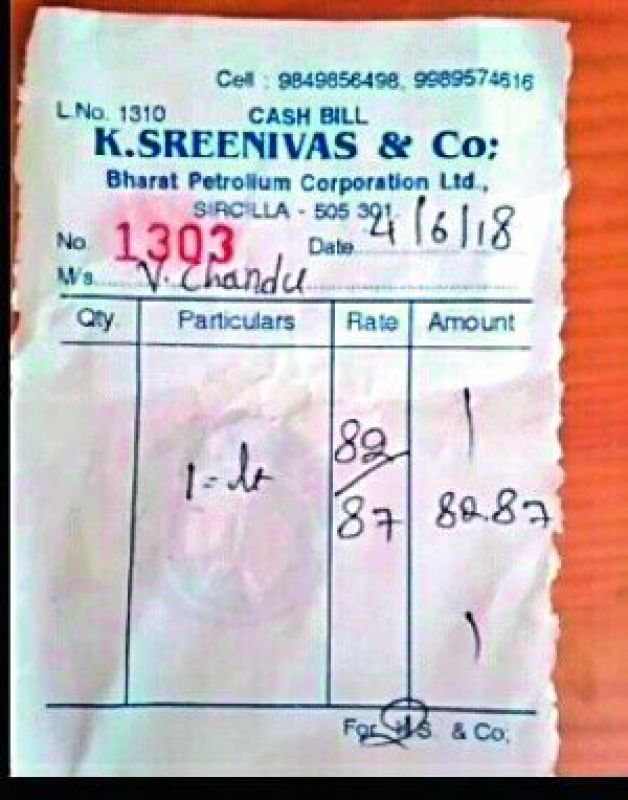 Cell : 9849856498, 9989574616
L.No. 1310 CASH BILL
K.SREENIVAS & Co;
Bharat Petrolium Corporation Ltd.,
SIRCILLA - 505 301.
No 1303 Date 4/6/18
M/s V. Chandu
Qty. Particulars Rate Amount
1 - lt 82/87 82.87
For K.S. & Co;